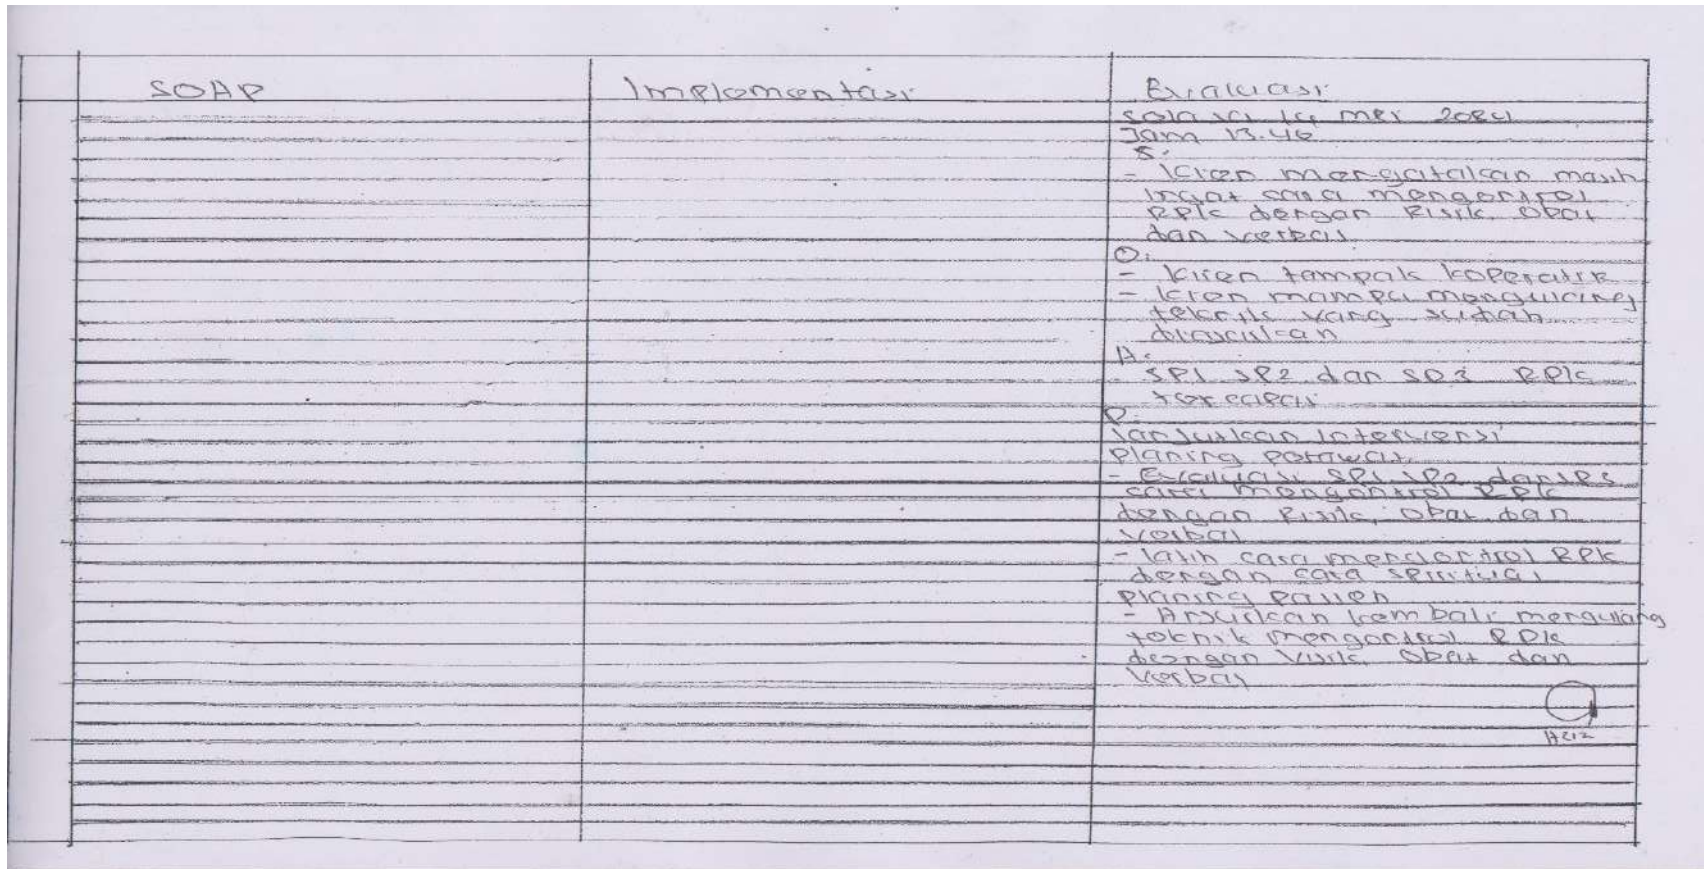 SOAP
Implementasi
Evaluasi
Selasa 14 mei 2024
Jam 13.40
S:
- Klien mengatakan masih
ingat cara mengontrol
RPK dengan Fisik, obat
dan verbal
O:
- Klien tampak koperatif
- Klien mampu mengulang
teknik yang sudah
A:
SP1 SP2 dan SP3 RPK
tercapai
P:
lanjutkan intervensi
Planing perawat
- Evaluasi SP1 SP2 dan SP3
cara mengontrol RPK
dengan Fisik, obat dan
verbal
- latih cara mengontrol RPK
dengan cara spiritual
Planing pasien
- Anjurkan kembali mengulang
teknik mengontrol RPK
dengan Fisik, obat dan
verbal
Aziz